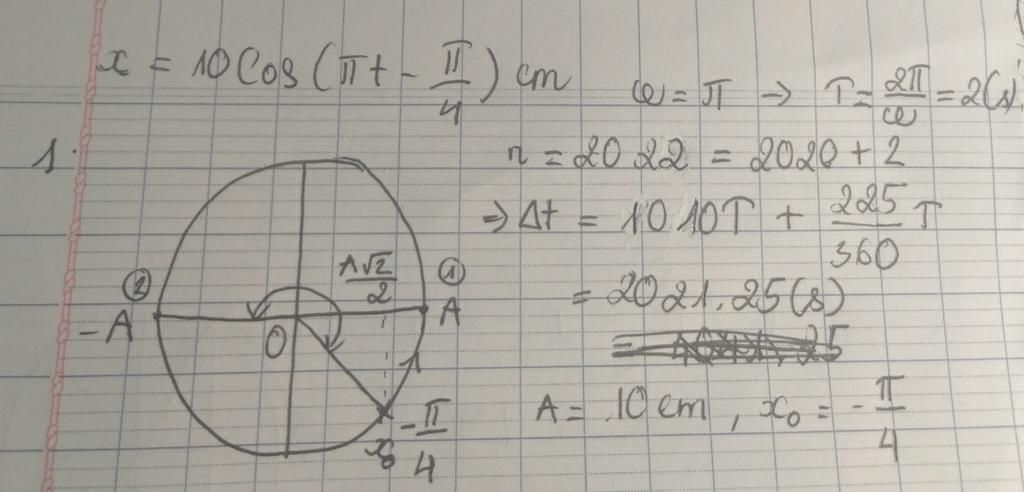 x = 10 Cos (πt - π/4) cm
ω = π → T = 2π/ω = 2(s)
1.
n = 2022 = 2020 + 2
⇒ Δt = 1010T + 225/360 T
= 2021.25(s)
A = 10 cm, x₀ = -π/4
② ①
A√2/2
-A O A
x₀ -π/4